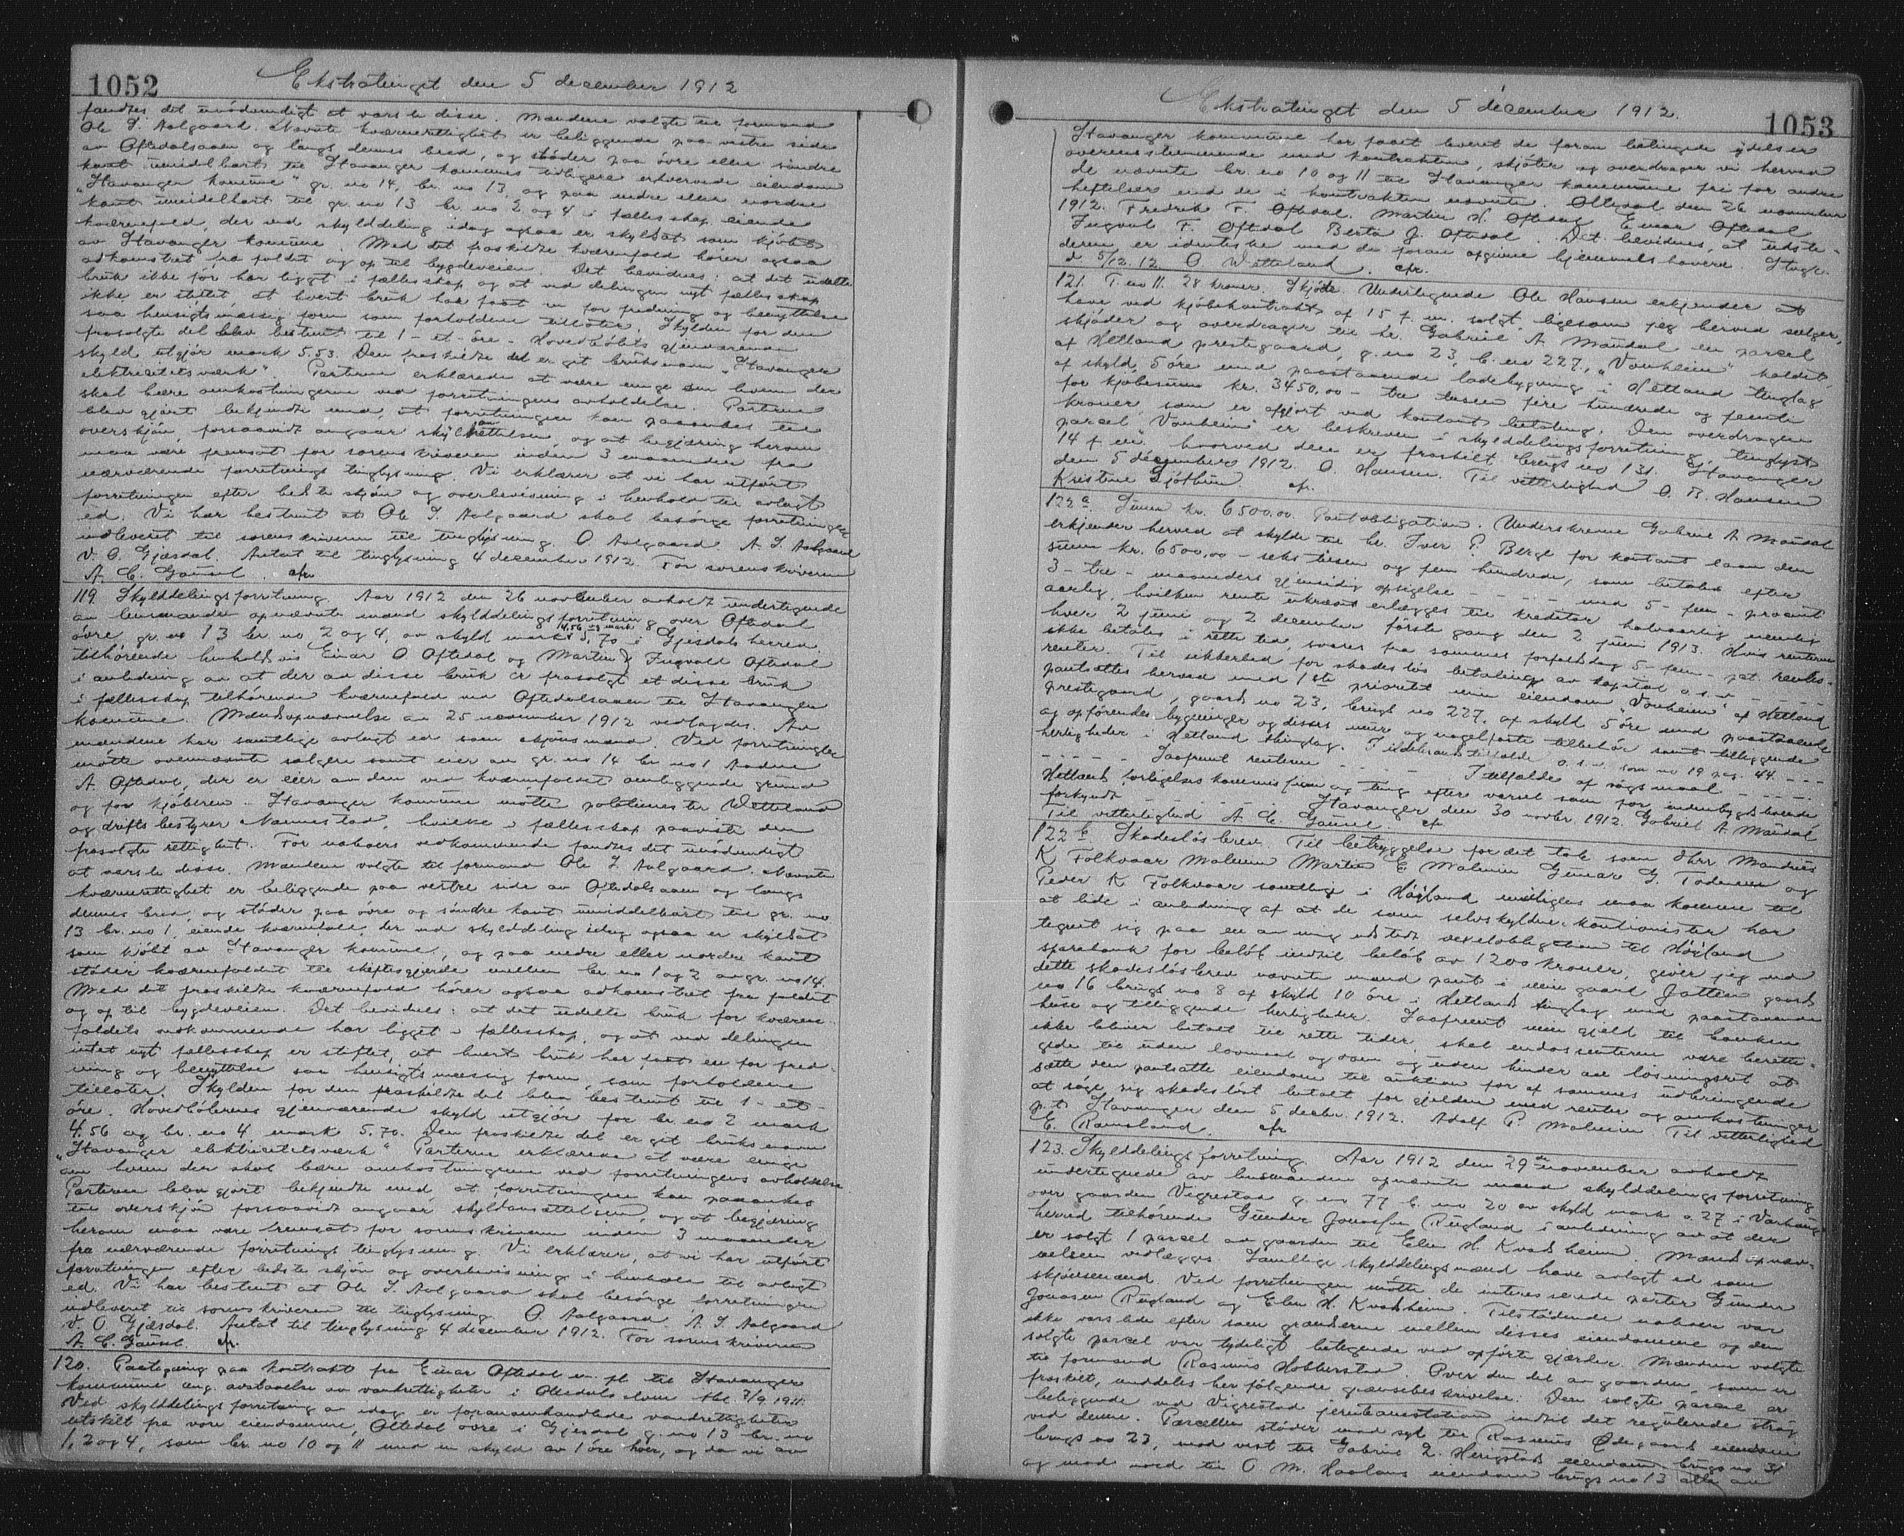 1052
Ekstratinget den 5 december 1912
fandtes det unødvendigt at varsle disse. Mændene valgte til formand
Ole J. Aalgaard. Nævnte kværnerettighet er beliggende paa vestre side
av Oftedalsaaen og langs dennes bred, og støder paa øvre eller søndre
kant umidelbart til Stavanger kommunes tidligere erhvervede eiendom
"Stavanger komune" gr. no 14, br. no 13 og paa nedre eller nordre
kant umidelbart til gr. no 13 br. no 2 og 4 i fællesskap eiende
kværnefold, der ved skylddeling idag ogsaa er skyldsat som kjøbt
av Stavanger komune. Med det fraskildte kværnefold hører ogsaa
adkomstret fra foldet og op til bygdeveien. Det bevidnes: at det udelte
bruk ikke før har ligget i fællesskap og at ved delingen nyt fællesskap
ikke er stiftet, at hvert bruk har faat en for fredning og benyttelse
saa hensigtsmæssig form som forholdene tillater. Skylden for den
frasolgte del blev bestemt til 1 - et - øre. Hovedbølets gjenværende
skyld utgjør mark 5.53. Den fraskildte del er git bruksnavn "Stavanger
elektricitetsværk". Parterne erklærede at være enige om hvem der
skal bære omkostningerne ved forretningens avholdelse. Parterne
blev gjort bekjendte med, at forretningen kan paaankes til
overskjøn, forsaavidt angaar skyldansættelsen, og at begjæring herom
maa være fremsat for sorenskriveren inden 3 maaneder fra
nærværende forretnings tinglysning. Vi erklærer at vi har utført
forretningen efter bedste skjøn og overbevisning i henhold til avlagt
ed. Vi har bestemt at Ole J. Aalgaard skal besørge forretningen
indleveret til sorenskriveren til tinglysning. O Aalgaard A. J. Aalgaard
V. O. Gjesdal. Antat til tinglysning 4 december 1912. For sorenskriveren
A. C. Gausel. cfr.
119 Skylddelingsforretning. Aar 1912 den 26 november avholdt undertegnede
av lensmanden opnævnte mænd skylddelingsforretning over Oftedal
øvre, gr. no 13 br. no 2 og 4, av skyld mark 4.56 og mark 5,70 i Gjesdals herred
tilhørende henholdsvis Einar O Oftedal og Martin & Ingvald Oftedal
i anledning av at der av disse bruk er frasolgt et disse bruk
i fællesskap tilhørende kværnefold ved Oftedalsaaen til Stavanger
komune. Mandsopnævnelse av 25 november 1912 vedlagdes. Av
mændene har samtlige avlagt ed som skjønsmænd. Ved forretningen
møtte ovennævnte sælgere samt eier av gr. no 14 br. no 1 Aadne
A. Oftedal, der er eier av den ved kværnefoldet omliggende grund
og for kjøberen - Stavanger komune møtte politimester Wetteland
og driftsbestyrer Nannestad, hvilke i fællesskap paaviste den
frasolgte rettighet. For naboers vedkommende fandtes det unødvendigt
at varsle disse. Mændene valgte til formand Ole J. Aalgaard. Nævnte
kværnerettighet er beliggende paa vestre side av Oftedalsaaen og langs
dennes bred, og støder paa øvre og søndre kant umiddelbart til gr. no
13 br. no 1, eiende kværnfold, der ved skylddeling idag ogsaa er skyldsat
som kjøbt av Stavanger komune, og paa nedre eller nordre kant
støder kværnefoldet til skiftesgjerde mellem br. no 1 og 2 av gr. no 14.
Med det fraskildte kværnefold hører ogsaa adkomstret fra foldet
og op til bygdeveien. Det bevidnes: at det udelte bruk for kværne-
foldets vedkommende har ligget i fællesskap, og at ved delingen
intet nyt fællesskap er stiftet, at hvert bruk har faat en for fred-
ning og benyttelse saa hensigtsmæssig form, som forholdene
tillater. Skylden for den fraskildte del blev bestemt til 1 - et -
øre. Hovedbølernes gjenværende skyld utgjør for br. no 2 mark
4.56 og br. no 4 mark 5.70. Den fraskildte del er git bruksnavn
"Stavanger elektricitetsværk" Parterne erklærede at være enige
om hvem der skal bære omkostningerne ved forretningens avholdelse
Parterne blev gjort bekjendte med, at forretningen kan paaankes
til overskjøn forsaavidt angaar skyldansættelsen, og at begjæring
herom maa være fremsat for sorenskriveren inden 3 maaneder
fra nærværende forretnings tinglysning. Vi erklærer, at vi har utført
forretningen efter bedste skjøn og overbevisning i henhold til avlagt
ed. Vi har bestemt at Ole J. Aalgaard skal besørge forretningen
indleveret til sorenskriveren til tinglysning O Aalgaard, A. J. Aalgaard
V. O Gjesdal. Antat til tinglysning 4 december 1912. For sorenskriveren
A. C. Gausel. cfr.
120. Paategning paa kontrakt fra Einar Oftedal m. fl til Stavanger
kommune ang. avstaaelse av vandrettigheter i Oltedalselven tbl 7/9 1911.
Ved skylddelingsforretning av idag er foranomhandlede vandrettigheter
utskilt fra vore eiendomme, Oltedal øvre i Gjesdal g. no 13 br. no
1, 2 og 4, som br. no 10 og 11 med en skyld av 1 øre hver, og da vi av
1053
Ekstratinget den 5 december 1912.
Stavanger kommune har faaet levert de foran betingede ydelser
overensstemmende med kontrakten, skjøter og overdrager vi herved
de nævnte br. no 10 og 11 til Stavanger kommune fri for andre
heftelser end de i kontrakten nævnte. Oltedal den 26 november
1912. Fredrik F. Oftdal. Martin N. Oftdal Einar Oftedal
Ingvald F. Oftedal Berta J. Oftedal. Det bevidnes, at udste-
derne er identiske med de foran opgivne hjemmelshavere. Stvgr.
d. 5/12.12 O Wetteland. cfr.
121. T. no 11. 28 kroner. Skjøte. Undertegnede Ole Hansen erkjender at
have ved kjøbekontrakt af 15 f. m. solgt, ligesom jeg herved sælger,
skjøder og overdrager til hr. Gabriel A Mandal en parcel
af Hetland prestegaard, g. no 23, b. no 227, "Vonheim" kaldet
af skyld, 5 øre med paastaaende ladebygning i Hetland tinglag
for kjøbesum kr. 3450,00 - tre tusen fire hundrede og femti
kroner, som er afgjort ved kontant betaling. Den overdragne
parcel "Vonheim" er beskreven i skylddelingsforretning, tinglyst
14 f. m. hvorved den er fraskilt brugs no 131. Stavanger
den 5 december 1912 O. Hansen. Til vitterlighed O. B. Hansen
Kristine Gjøthun cfr.
122 a Sum kr. 6500.00 Pantobligation. Underskrevne Gabriel A Mandal
erkjender herved at skylde til hr. Iver P. Berge for kontant laan den
sum kr. 6500,00 - seks tusen og fem hundrede, som betales efter
3 - tre - maaneders gjensidig opsigelse - - - - med 5 - fem - procent
aarlig, hvilken rente ukrævet erlægges til kreditor halvaarlig nemlig
hver 2 juni og 2 december første gang den 2 juni 1913. Hvis renterne
ikke betales i rette tid, svares fra sammes forfaldsdag 5 - fem - pct. rentes-
renter. Til sikkerhed for skadesløs betaling av kapital o.s.v.
pantsættes herved med 1ste prioritet min eiendom "Vonheim" af Hetland
prestegaard, gaards no 23, brugs no 227, af skyld 5 øre med paastaaende
og opførendes bygninger og disses mur og nagelfaste tilbehør samt tilliggende
herligheder i Hetland thinglag. I ildebrandstilfælde o.s.v. som no 19 pag. 44 - - -
- - - - Isafremt renterne - - - - I tilfælde af søgsmaal - - - -
Hetlands forligelseskommission og ting efter varsel som for indenbygds boende
forkyndt - - - - Stavanger den 30 novbr. 1912. Gabriel A Mandal
Til vitterlighed A C Gausel. cfr
122 b Skadesløsbrev. Til betryggelse for det tab som Hrr Mandius
K Folkvoar Malmin Martin E Malmin Gunar G. Todnem og
Peder K Folkvoar samtlige i Høiland muligens maa komme til
at lide i anledning af at de som selvskyldner-kautionister har
tegnet sig paa en av mig udstedt vexelobligation til Høiland
sparebank for beløb indtil beløb av 1200 kroner, giver jeg ved
dette skadesløsbrev nævnte mænd pant i min gaard Jåtten gaards
no 16 brugs no 8 af skyld 10 øre i Hetlands thinglag med paastaaende
huse og tilliggende herligheder. Isafremt min gjeld til banken
ikke bliver betalt til rette tider, skal endossenterne være beretti-
gede til uden lovmaal og dom og uden hinder av løsningsret at
sætte den pantsatte eiendom til auktion for af sammes udbringende
at søge sig skadesløst betalt for gjælden med renter og omkostninger
p.t. Stavanger den 5 decbr. 1912. Adolf P. Malmin Til vitterlighed
E. Ramsland. cfr
123. Skylddelingsforretning Aar 1912 den 29de november avholdt
undertegnede av lensmanden opnævnte mænd skylddelingsforretning
over gaarden Vigrestad g. no 77 b. no 20 av skyld mark 0.27 i Varhaug
herred tilhørende Gunder Jonassen Rugland i anledning av at der
er solgt 1 parcel av gaarden til Elen H. Kvadsheim Mandsopnæv-
nelsen vedlægges. Samtlige skylddelingsmænd have avlagt ed som
skjønsmænd. Ved forretningen møtte de interesserede parter Gunder
Jonassen Rugland og Elen H. Kvadsheim. Tilstødende naboer var
ikke varslede efter som grænserne mellem disses eiendomme og den
solgte parcel var tydeligt betegnede ved opførte gjærder. Mændene valgte
til formand Rasmus Hobberstad. Over den del av gaarden, som er
fraskilt, meddeles her følgende grænsebeskrivelse. Den solgte parcel er
beliggende ved Vigrestad jernbanestation indtil det regulerede strøg
ved denne. Parcellen støder mod syd til Rasmus Ødegaards eiendom
brugs no 23, mod vest til Gabriel L. Herigstads eiendom brugs no 31
og mod nord til O M. Haalans eiendom brugs no 13 alle av